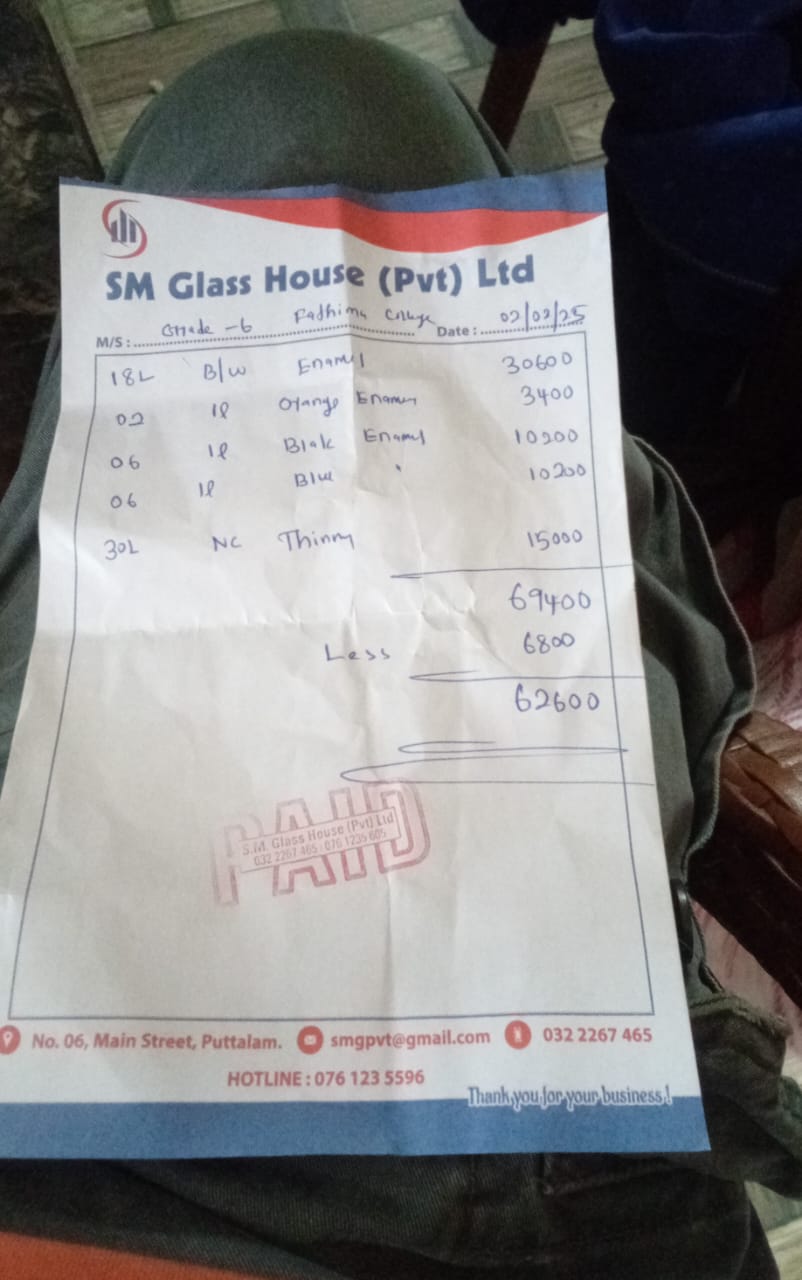 SM Glass House (Pvt) Ltd
M/S : Grade -6 Fadhima College Date : 02/02/25
18L B/W Enamel 30600
02 1l Orange Enamel 3400
06 1l Blak Enamel 10200
06 1l Blue " 10200
30L NC Thinny 15000
69400
Less 6800
62600
PAID
S.M. Glass House (Pvt) Ltd
032 2267 465 : 076 1235 605
No. 06, Main Street, Puttalam. smgpvt@gmail.com 032 2267 465
HOTLINE : 076 123 5596
Thank you for your business !